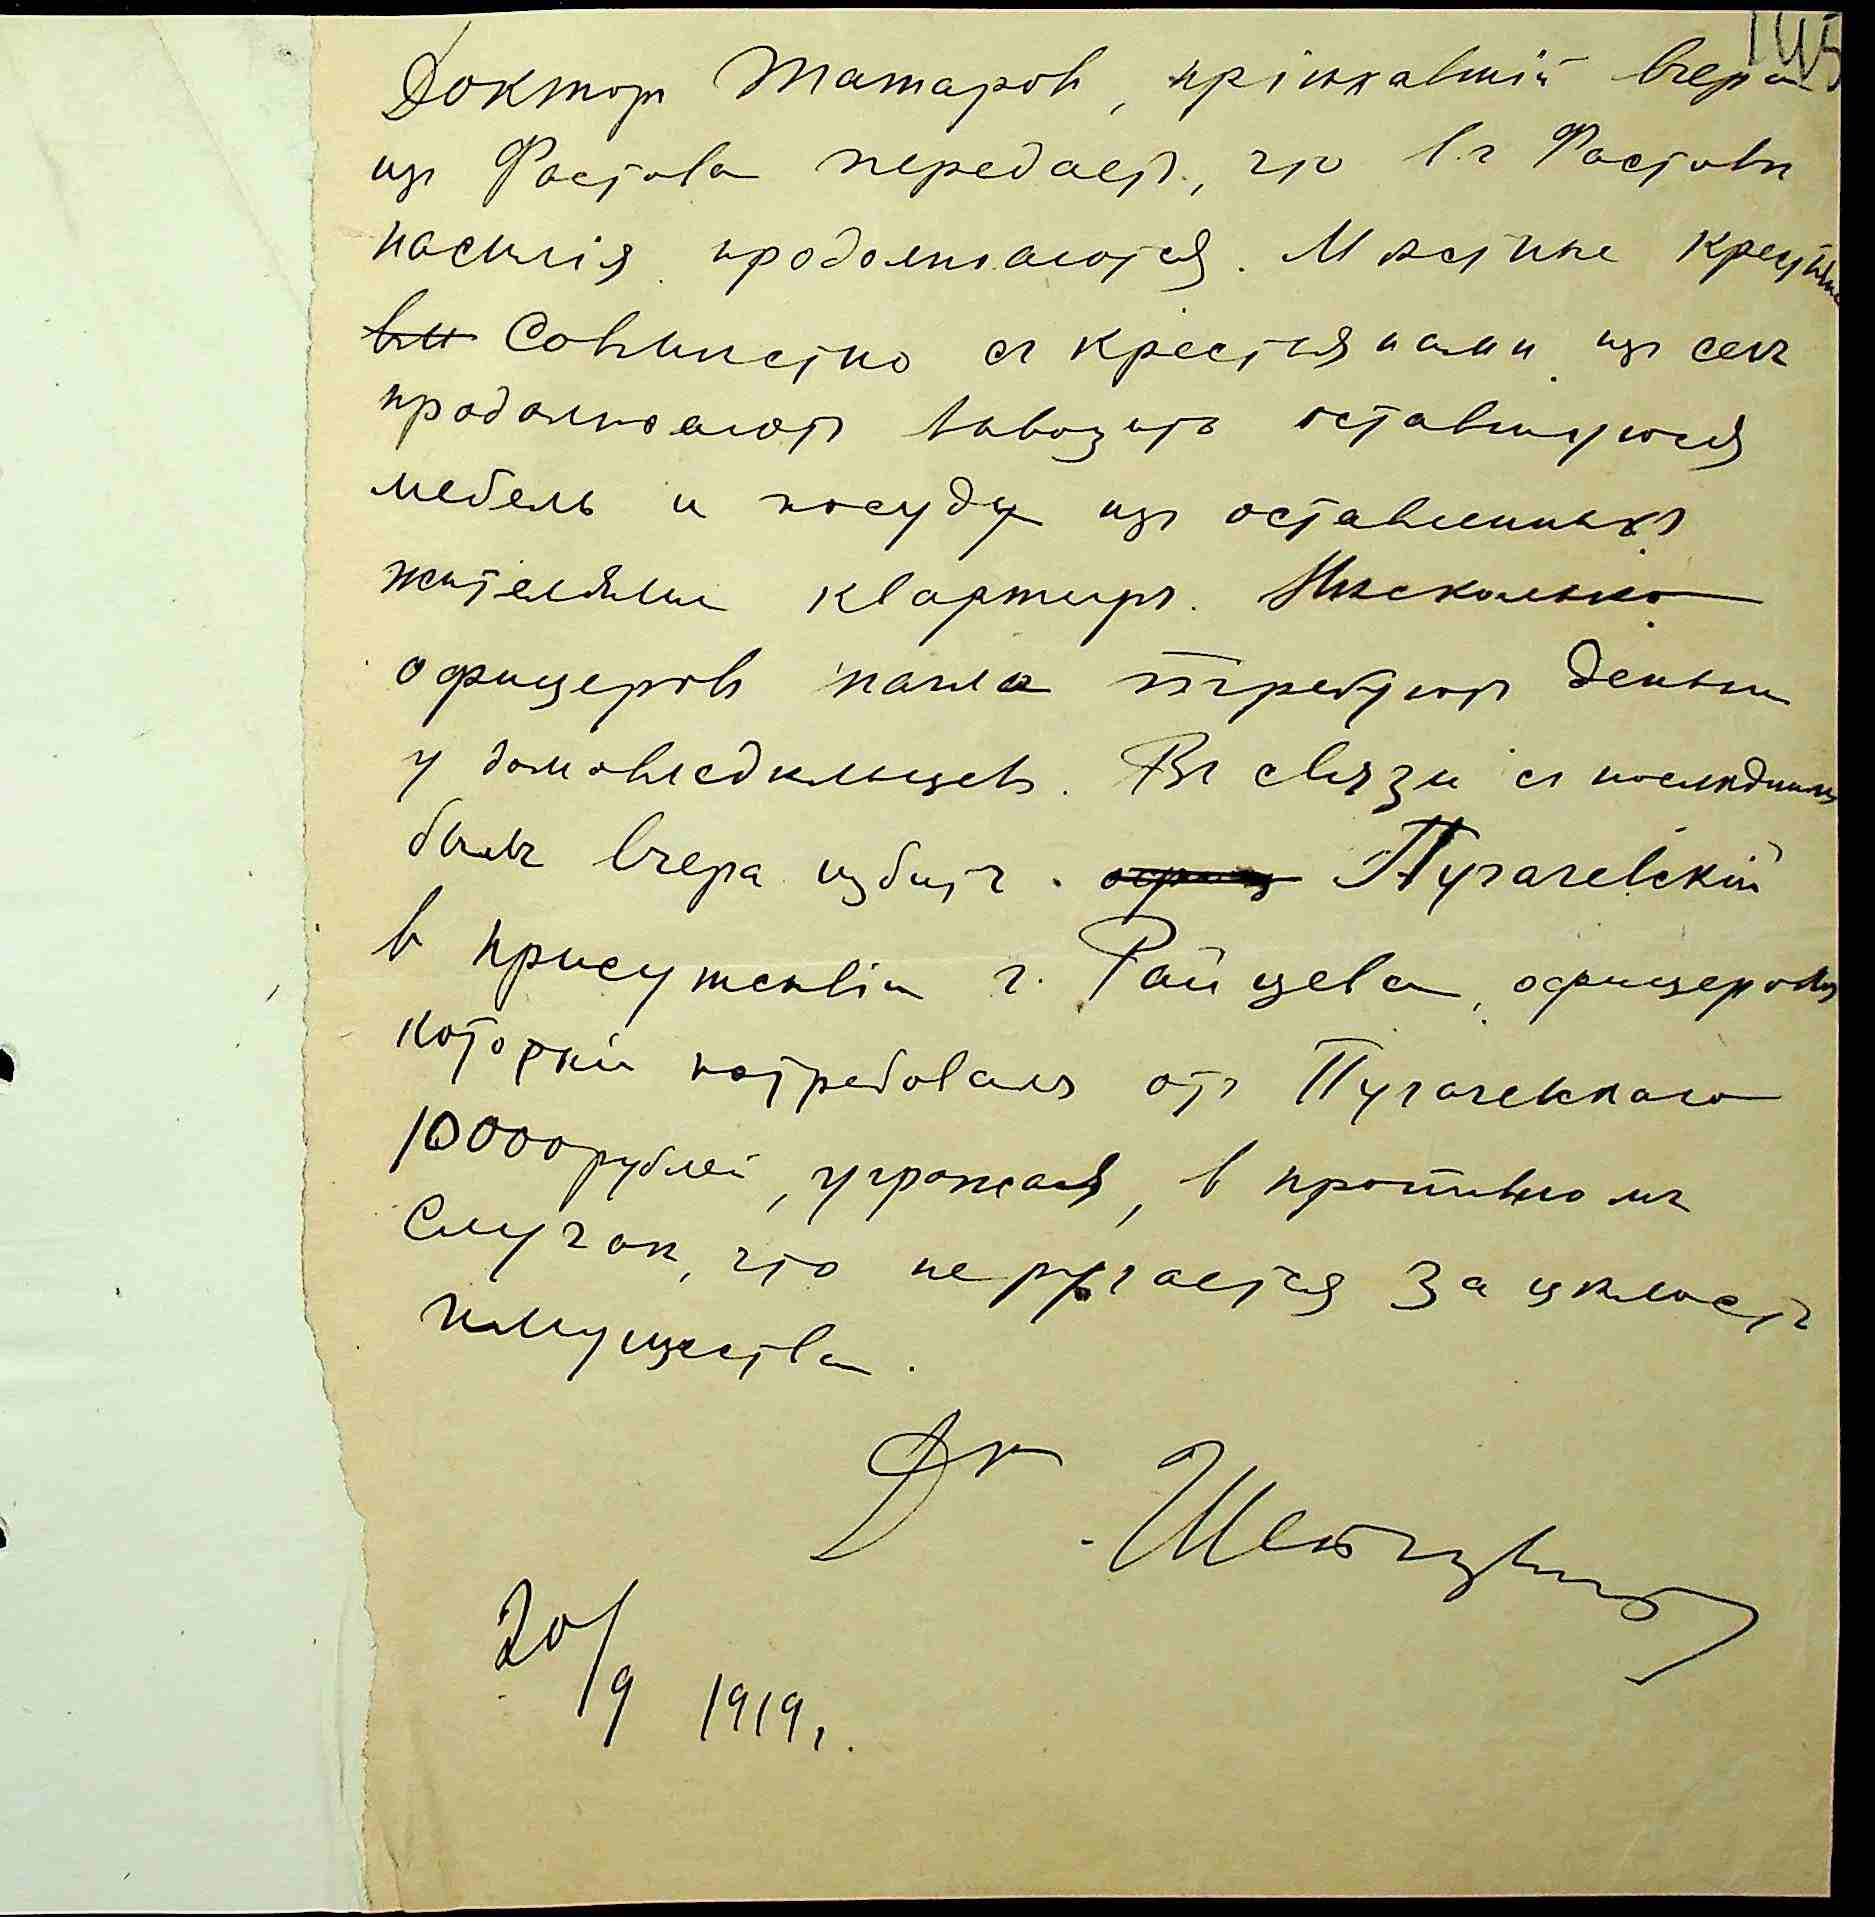 145
Докторъ Татаровъ, пріѣхавшій вчера
изъ Фастова передаетъ, что въ г Фастовѣ
насилія продолжаются. Мѣстные крестьяне
совмѣстно съ крестьянами изъ селъ
продолжаютъ вывозить оставшуюся
мебель и посуду изъ оставленныхъ
жителями квартиръ. Нѣсколько
офицеровъ нагло требуютъ деньги
у домовладѣльцевъ. Въ связи съ послѣднимъ
былъ вчера избитъ Пугачевскій
в присутствіи г. Райцева, офицеромъ
который потребовалъ отъ Пугачевскаго
10000 рублей, угрожая, в противномъ
случаѣ, что не ругается за цѣлость
имущества.
Dr
20/9 1919 г.